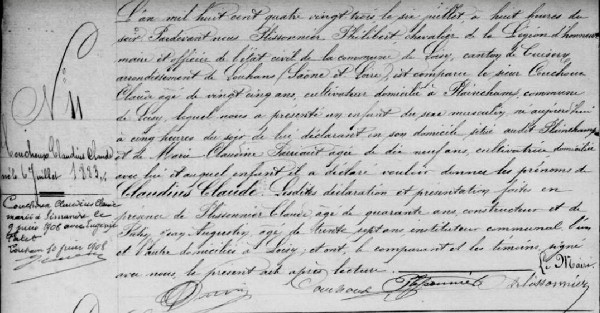 L'an mil huit cent quatre vingt trois le six juillet à huit heures du
soir Pardevant nous Plissonnier Philibert chevalier de la Légion d'honneur
maire et officier de l'état civil de la commune de Loisy, canton de Cuisery,
arrondissement de Louhans (Saône et Loire), est comparu le sieur Couchoux
Claude âgé de vingt cinq ans, cultivateur domicilié à Plainchamp, commune
de Loisy, lequel nous a présenté un enfant du sexe masculin, né aujourd'hui
à cinq heures du soir de lui déclarant en son domicile situé audit Plainchamp
et de Marie Claudine âgée de dix neuf ans, cultivatrice domiciliée
avec lui et auquel enfant il a déclaré vouloir donner les prénoms de
Claudius Claude. Lesdites déclaration et présentation faites en
présence de Plissonnier Claude âgé de quarante ans, constructeur et de
Jean Augustin, âgé de trente sept ans instituteur communal l'un
et l'autre domiciliés à Loisy; et ont, le comparant et les témoins, signé
avec nous, le présent acte après lecture.
Le Maire
Couchoux Plissonnier Plissonnier
N° 11
Couchoux Claudius Claude
né le 6 Juillet 1883
Couchoux Claudius Claude
marié à Simandre le
9 1908 avec Eugénie
1908